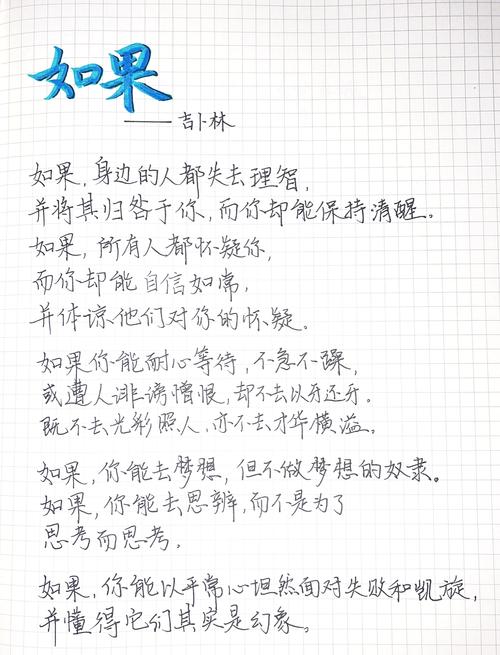 如果
——吉卜林
如果,身边的人都失去理智,
并将其归咎于你,而你却能保持清醒。
如果,所有人都怀疑你,
而你却能自信如常,
并体谅他们对你的怀疑。
如果你能耐心等待,不急不躁,
或遭人诽谤憎恨,却不去以牙还牙。
既不去光彩照人,亦不去才华横溢。
如果,你能去梦想,但不做梦想的奴隶。
如果,你能去思辨,而不是为了
思考而思考。
如果,你能以平常心坦然面对失败和凯旋,
并懂得它们其实是幻象。